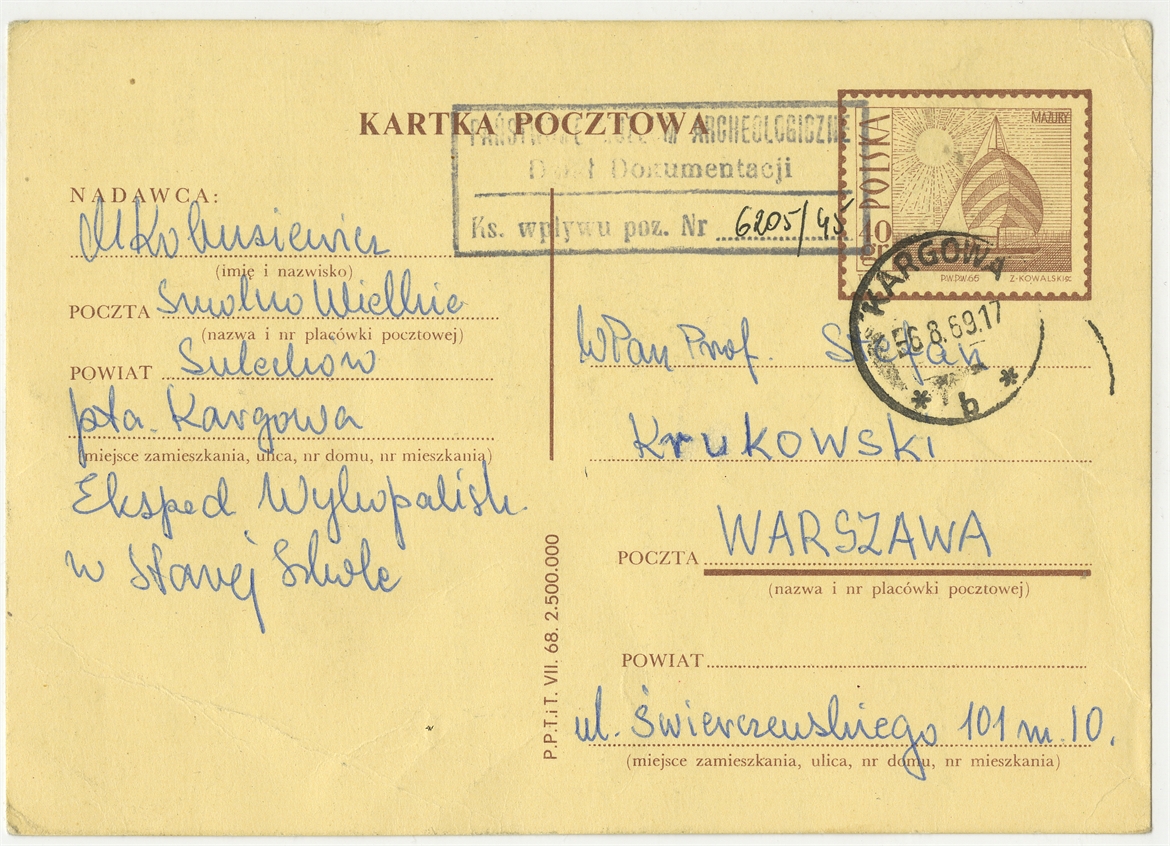 KARTKA POCZTOWA
PAŃSTWOWE MUZEUM ARCHEOLOGICZNE
Dział Dokumentacji
Ks. wpływu poz. Nr 6205/45
POLSKA
MAZURY
40 gr
P.W.P.W. 65 Z-KOWALSKI
KARGOWA
6.8.69.17
* b *
NADAWCA:
M Kobusiewicz
(imię i nazwisko)
POCZTA Smolno Wielkie
(nazwa i nr placówki pocztowej)
POWIAT Sulechów
pta. Kargowa
(miejsce zamieszkania, ulica, nr domu, nr mieszkania)
Eksped Wykopalisk.
w Starej Szkole
P.P.T.i T. VII. 68. 2.500.000
WPan Prof. Stefan
Krukowski
POCZTA WARSZAWA
(nazwa i nr placówki pocztowej)
POWIAT
ul. Świerczewskiego 101 m. 10.
(miejsce zamieszkania, ulica, nr domu, nr mieszkania)